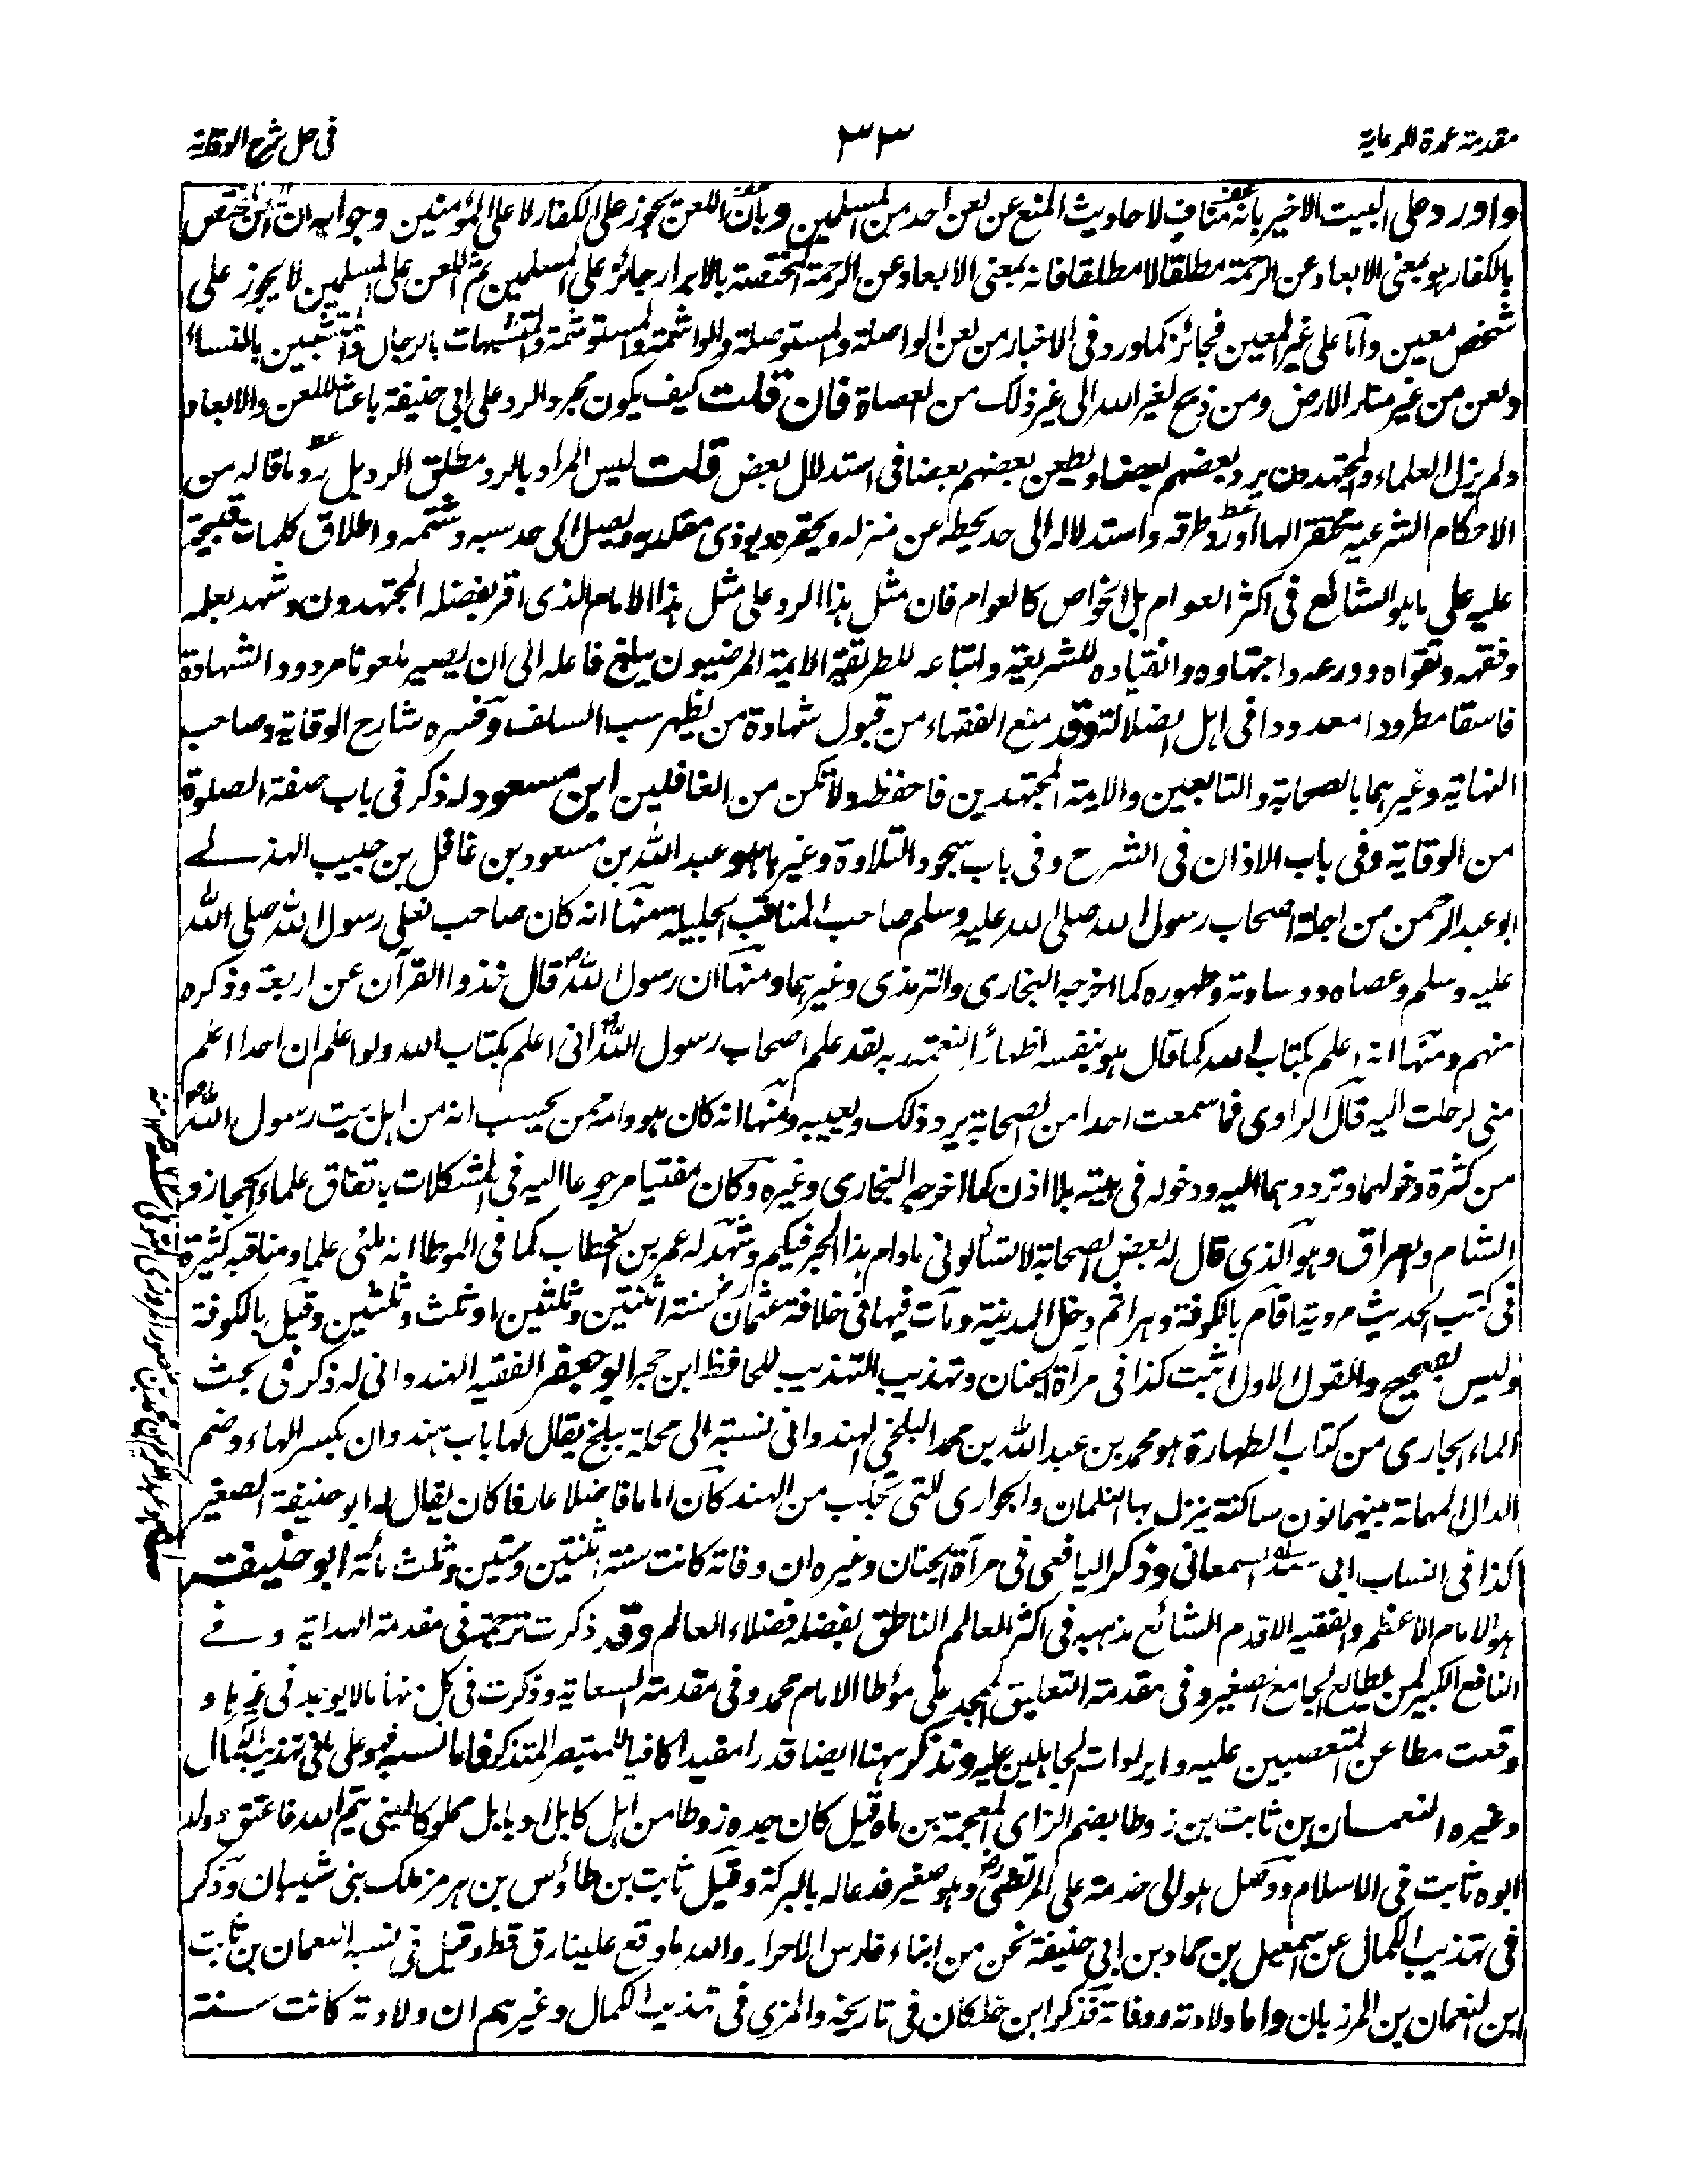 مقدمة عمدة الرعاية
٣٣
فى حل شرح الوقاية
واورد على البيت الاخير بانه مناف لاحاديث المنع عن لعن احد من المسلمين وبان اللعن يجوز على الكفار لا على المؤمنين وجوابه ان المختص
بالكفار هو بمعنى الابعاد عن الرحمة مطلقا لا مطلقا فانه بمعنى الابعاد عن الرحمة المختصة بالابرار جائز على المسلمين ثم اللعن على المسلمين لا يجوز على
شخص معين واما على غير المعين فجائز كما ورد فى الاخبار من لعن الواصلة والمستوصلة والواشمة والمستوشمة والمتشبهات بالرجال والمتشبهين بالنساء
ولعن من غير منار الارض ومن ذبح لغير الله الى غير ذلك من العصاة فان قلت كيف يكون مجرد الرد على ابى حنيفة باعثا للعن والابعاد
ولم يزل العلماء والمجتهدون يرد بعضهم بعضا ويطعن بعضهم بعضا فى استدلال بعض قلت ليس المراد بالرد مطلق الرد بل رد ما قاله من
الاحكام الشرعية محتقرا لها او رد طرقه واستدلاله الى حد يحطه عن منزله ويحقره ويوذى مقلديه ويصل الى حد سبه وشتمه واطلاق كلمات قبيحة
عليه على ما هو الشائع فى اكثر العوام بل الخواص كالعوام فان مثل هذا الرد على مثل هذا الامام الذى اقر بفضله المجتهدون وشهد بعلمه
وفقهه وتقواه وورعه واجتهاده وانقياده للشريعة واتباعه للطريقة الايمة المرضيون يبلغ فاعله الى ان يصير ملعونا مردود الشهادة
فاسقا مطرودا معدودا فى اهل الضلالة وقد منع الفقهاء من قبول شهادة من يظهر سب السلف وفسره شارح الوقاية وصاحب
النهاية وغيرهما بالصحابة والتابعين والايمة المجتهدين فاحفظه ولا تكن من الغافلين ابن مسعود له ذكر فى باب صفة الصلوة
من الوقاية وفى باب الاذان فى الشرح وفى باب سجود التلاوة وغيرها هو عبد الله بن مسعود بن غافل بن حبيب الهذلے
ابو عبد الرحمن من اجلة اصحاب رسول الله صلى الله عليه وسلم صاحب المناقب الجليلة منها انه كان صاحب نعلى رسول الله صلى الله
عليه وسلم وعصاه ووسادته وطهوره كما اخرجه البخارى والترمذى وغيرهما ومنها ان رسول الله قال خذوا القرآن عن اربعة وذكره
منهم ومنها انه اعلم بكتاب الله كما قال هو بنفسه اظهارا لنعمة ربه لقد علم اصحاب رسول الله انى اعلم بكتاب الله ولو اعلم ان احدا اعلم
منى لرحلت اليه قال الراوى فما سمعت احدا من الصحابة يرد ذلك ويعيبه ومنها انه كان هو وامه ممن يحسب انه من اهل بيت رسول الله
من كثرة دخولهما وترددهما اليه ودخوله فى بيته بلا اذن كما اخرجه البخارى وغيره وكان مفتيا مرجوعا اليه فى المشكلات باتفاق علماء الحجاز و
الشام والعراق وهو الذى قال له بعض الصحابة لا تسألونى ما دام هذا الحبر فيكم وشهد له عمر بن الخطاب كما فى الموطا انه ملئى علما ومناقبه كثيرة
فى كتب الحديث مروية اقام بالكوفة دهرا ثم دخل المدينة ومات فيها فى خلافة عثمان سنة اثنتين وثلثين او ثلث وثلثين وقيل بالكوفة
وليس بصحيح والقول الاول اثبت كذا فى مرآة الجنان وتهذيب التهذيب للحافظ ابن حجر ابو جعفر الفقيه الهندوانى له ذكر فى بحث
الماء الجارى من كتاب الطهارة هو محمد بن عبد الله بن محمد البلخى الهندوانى نسبة الى محلة ببلخ يقال لها باب هندوان بكسر الهاء وضم
الدال المهملة بينهما نون ساكنة ينزل بها الغلمان والجوارى التى تجلب من الهند كان اماما فاضلا عارفا كان يقال له ابو حنيفة الصغير
كذا فى انساب ابى سعد السمعانى وذكر اليافعى فى مرآة الجنان وغيره ان وفاته كانت سنة اثنتين وستين وثلث مائة ابو حنيفة
هو الامام الاعظم والفقيه الاقدم الشائع مذهبه فى اكثر العالم الناطق بفضله فضلاء العالم وقد ذكرت ترجمته فى مقدمة الهداية وفے
النافع الكبير لمن يطالع الجامع الصغير وفى مقدمة التعليق الممجد على موطا الامام محمد وفى مقدمة السعاية وذكرت فى كل منها ما لا يوجد فى غيرها و
وقعت مطاعن المتعصبين عليه وايرادات الجاهلين عليه ونذكر ههنا ايضا قدرا مفيدا كافيا للمتبصر المتذكر فاما نسبه فهو على ما فى تهذيب الكمال
وغيره النعمان بن ثابت بن زوطا بضم الزاى المعجمة بن ماه قيل كان جده زوطا من اهل كابل او بابل مملوكا لبنى تيم الله فاعتق وولد
ابوه ثابت فى الاسلام ووصل هو الى خدمة على المرتضى وهو صغير فدعا له بالبركة وقيل ثابت بن طاؤس بن هرمز ملك بنى شيبان وذكر
فى تهذيب الكمال عن اسمعيل بن حماد بن ابى حنيفة نحن من ابناء فارس الاحرار والله ما وقع علينا رق قط وقيل فى نسبه النعمان بن ثابت
ابن النعمان بن المرزبان واما ولادته ووفاته فذكر ابن خلكان فى تاريخه والمزى فى تهذيب الكمال وغيرهم ان ولادته كانت سنة